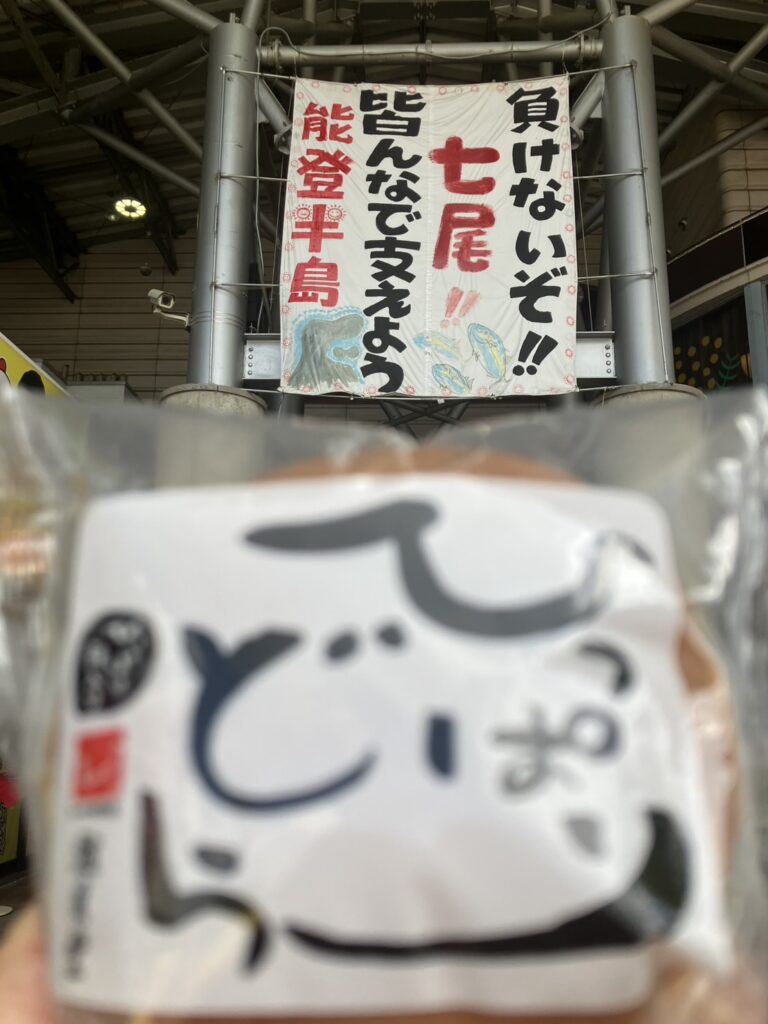 負けないぞ!!
七尾!!
皆んなで支えよう
能登半島
てっぱん
どら